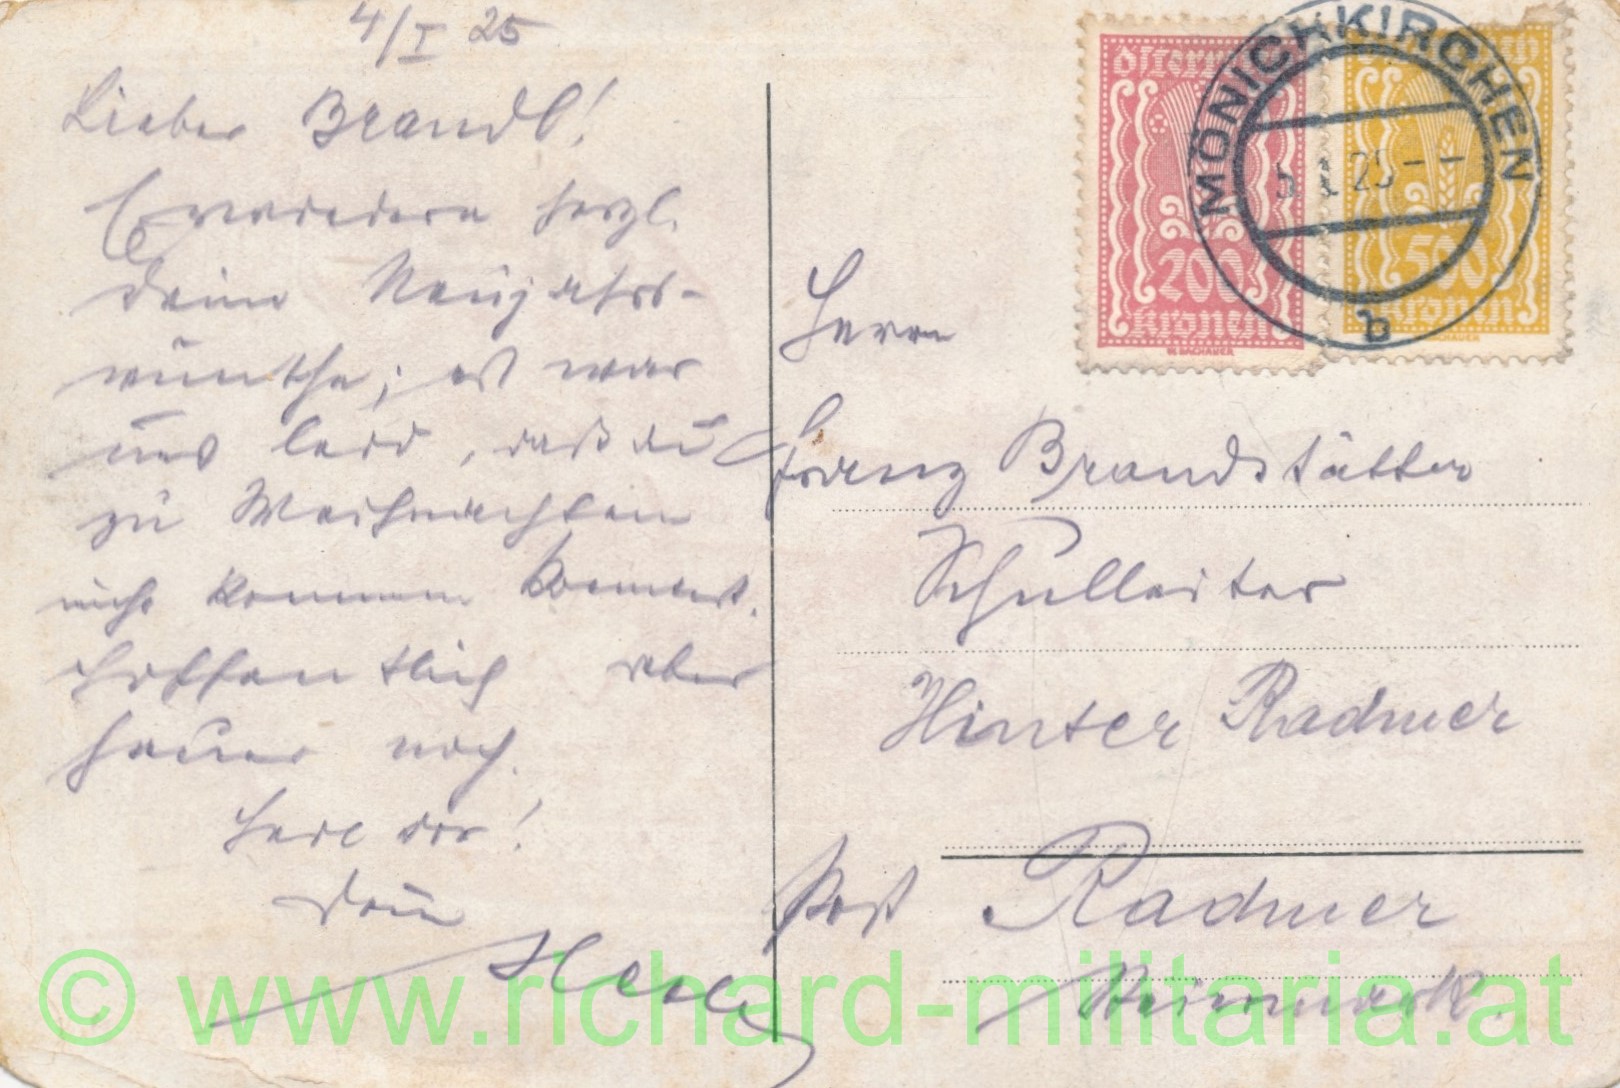 4/I 25
Lieber Brandl!
Erwiedere herzl.
Deine Neujahrs-
wünsche; es war
uns leid, daß du
zu Weihnachten
nicht kommen konntest.
Hoffentlich aber
heuer noch.
Dein
Herrn
Franz Brandstätter
Schulleiter
Hinter Radmer
Post Radmer
Steiermark.
Österreich
200
Kronen
W. DACHAUER
500
Kronen
MÖNICHKIRCHEN
5. I. 25
b
© www.richard-militaria.at